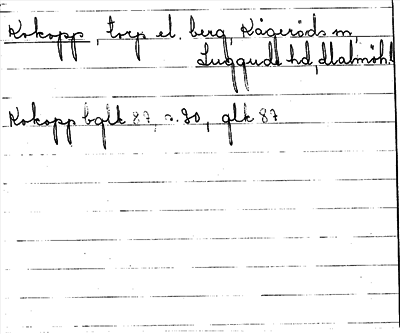 Kokopp, torp el. berg, Kågeröds sn,
Luggude hd, Malmöhl
Kokopp bglk 87, s. 20, glk 87